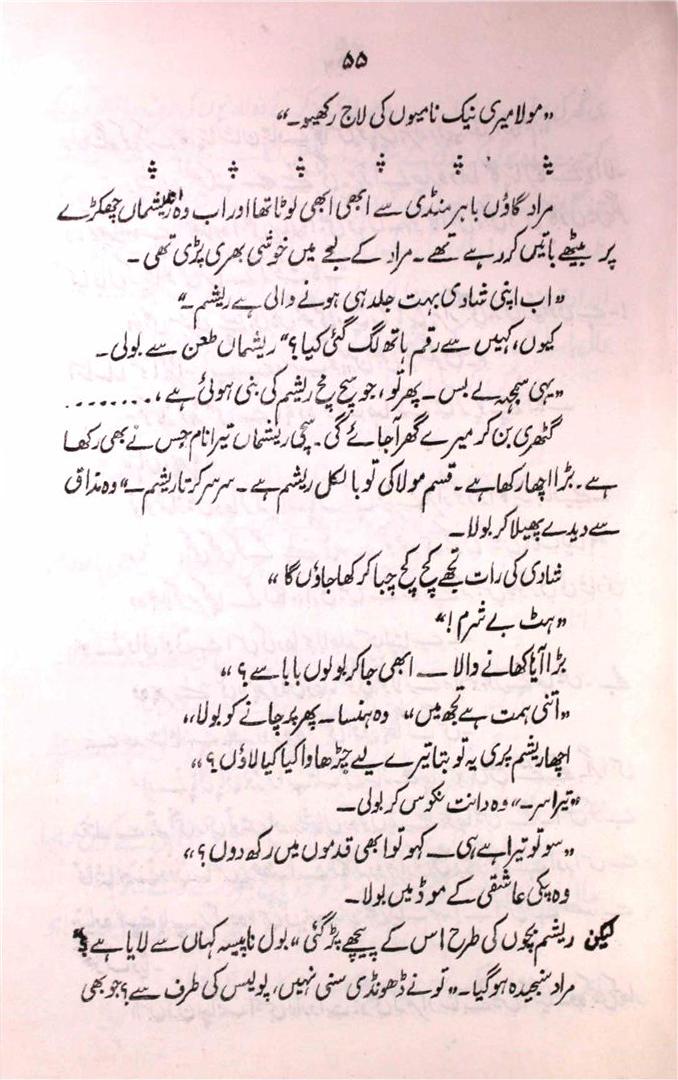 ۵۵
“مولا میری نیک نامیوں کی لاج رکھیو۔“
مراد گاؤں باہر منڈی سے ابھی ابھی لوٹا تھا اور اب وہ ریشماں چھکڑے
پر بیٹھے باتیں کر رہے تھے۔ مراد کے لہجے میں خوشی بھری پڑی تھی۔
“اب اپنی شادی بہت جلد ہی ہونے والی ہے ریشم۔“
کیوں، کہیں سے رقم ہاتھ لگ گئی کیا؟“ ریشماں طعن سے بولی۔
“یہی سمجھ لے بس۔ پھر تُو، جو سچ مچ ریشم کی بنی ہوئی ہے، ........
گٹھری بن کر میرے گھر آجائے گی۔ سچی ریشماں تیرا نام جس نے بھی رکھا
ہے۔ بڑا اچھا رکھا ہے۔ قسم مولا کی تو بالکل ریشم ہے۔ سرسر کرتا ریشم۔“ وہ مذاق
سے دیدے پھیلا کر بولا۔
شادی کی رات تجھے کچ کچ چبا کر کھا جاؤں گا“
“ہٹ بے شرم!“
بڑا آیا کھانے والا — ابھی جا کر بولوں بابا سے؟“
“اتنی ہمت ہے تجھ میں“ وہ ہنسا۔ پھر پرچانے کو بولا،،
اچھا ریشم پری یہ تو بتا تیرے لیے چڑھاوا کیا کیا لاؤں؟“
“تیرا سر۔“ وہ دانت نکوس کر بولی۔
“سو تو تیرا ہے ہی — کہو تو ابھی قدموں میں رکھ دوں؟“
وہ پکی عاشقی کے موڈ میں بولا۔
لیکن ریشم بچوں کی طرح اس کے پیچھے پڑ گئی “بول نا پیسہ کہاں سے لایا ہے؟“
مراد سنجیدہ ہو گیا۔ “تو نے ڈھونڈی سنی نہیں، پولیس کی طرف سے؟ جو بھی